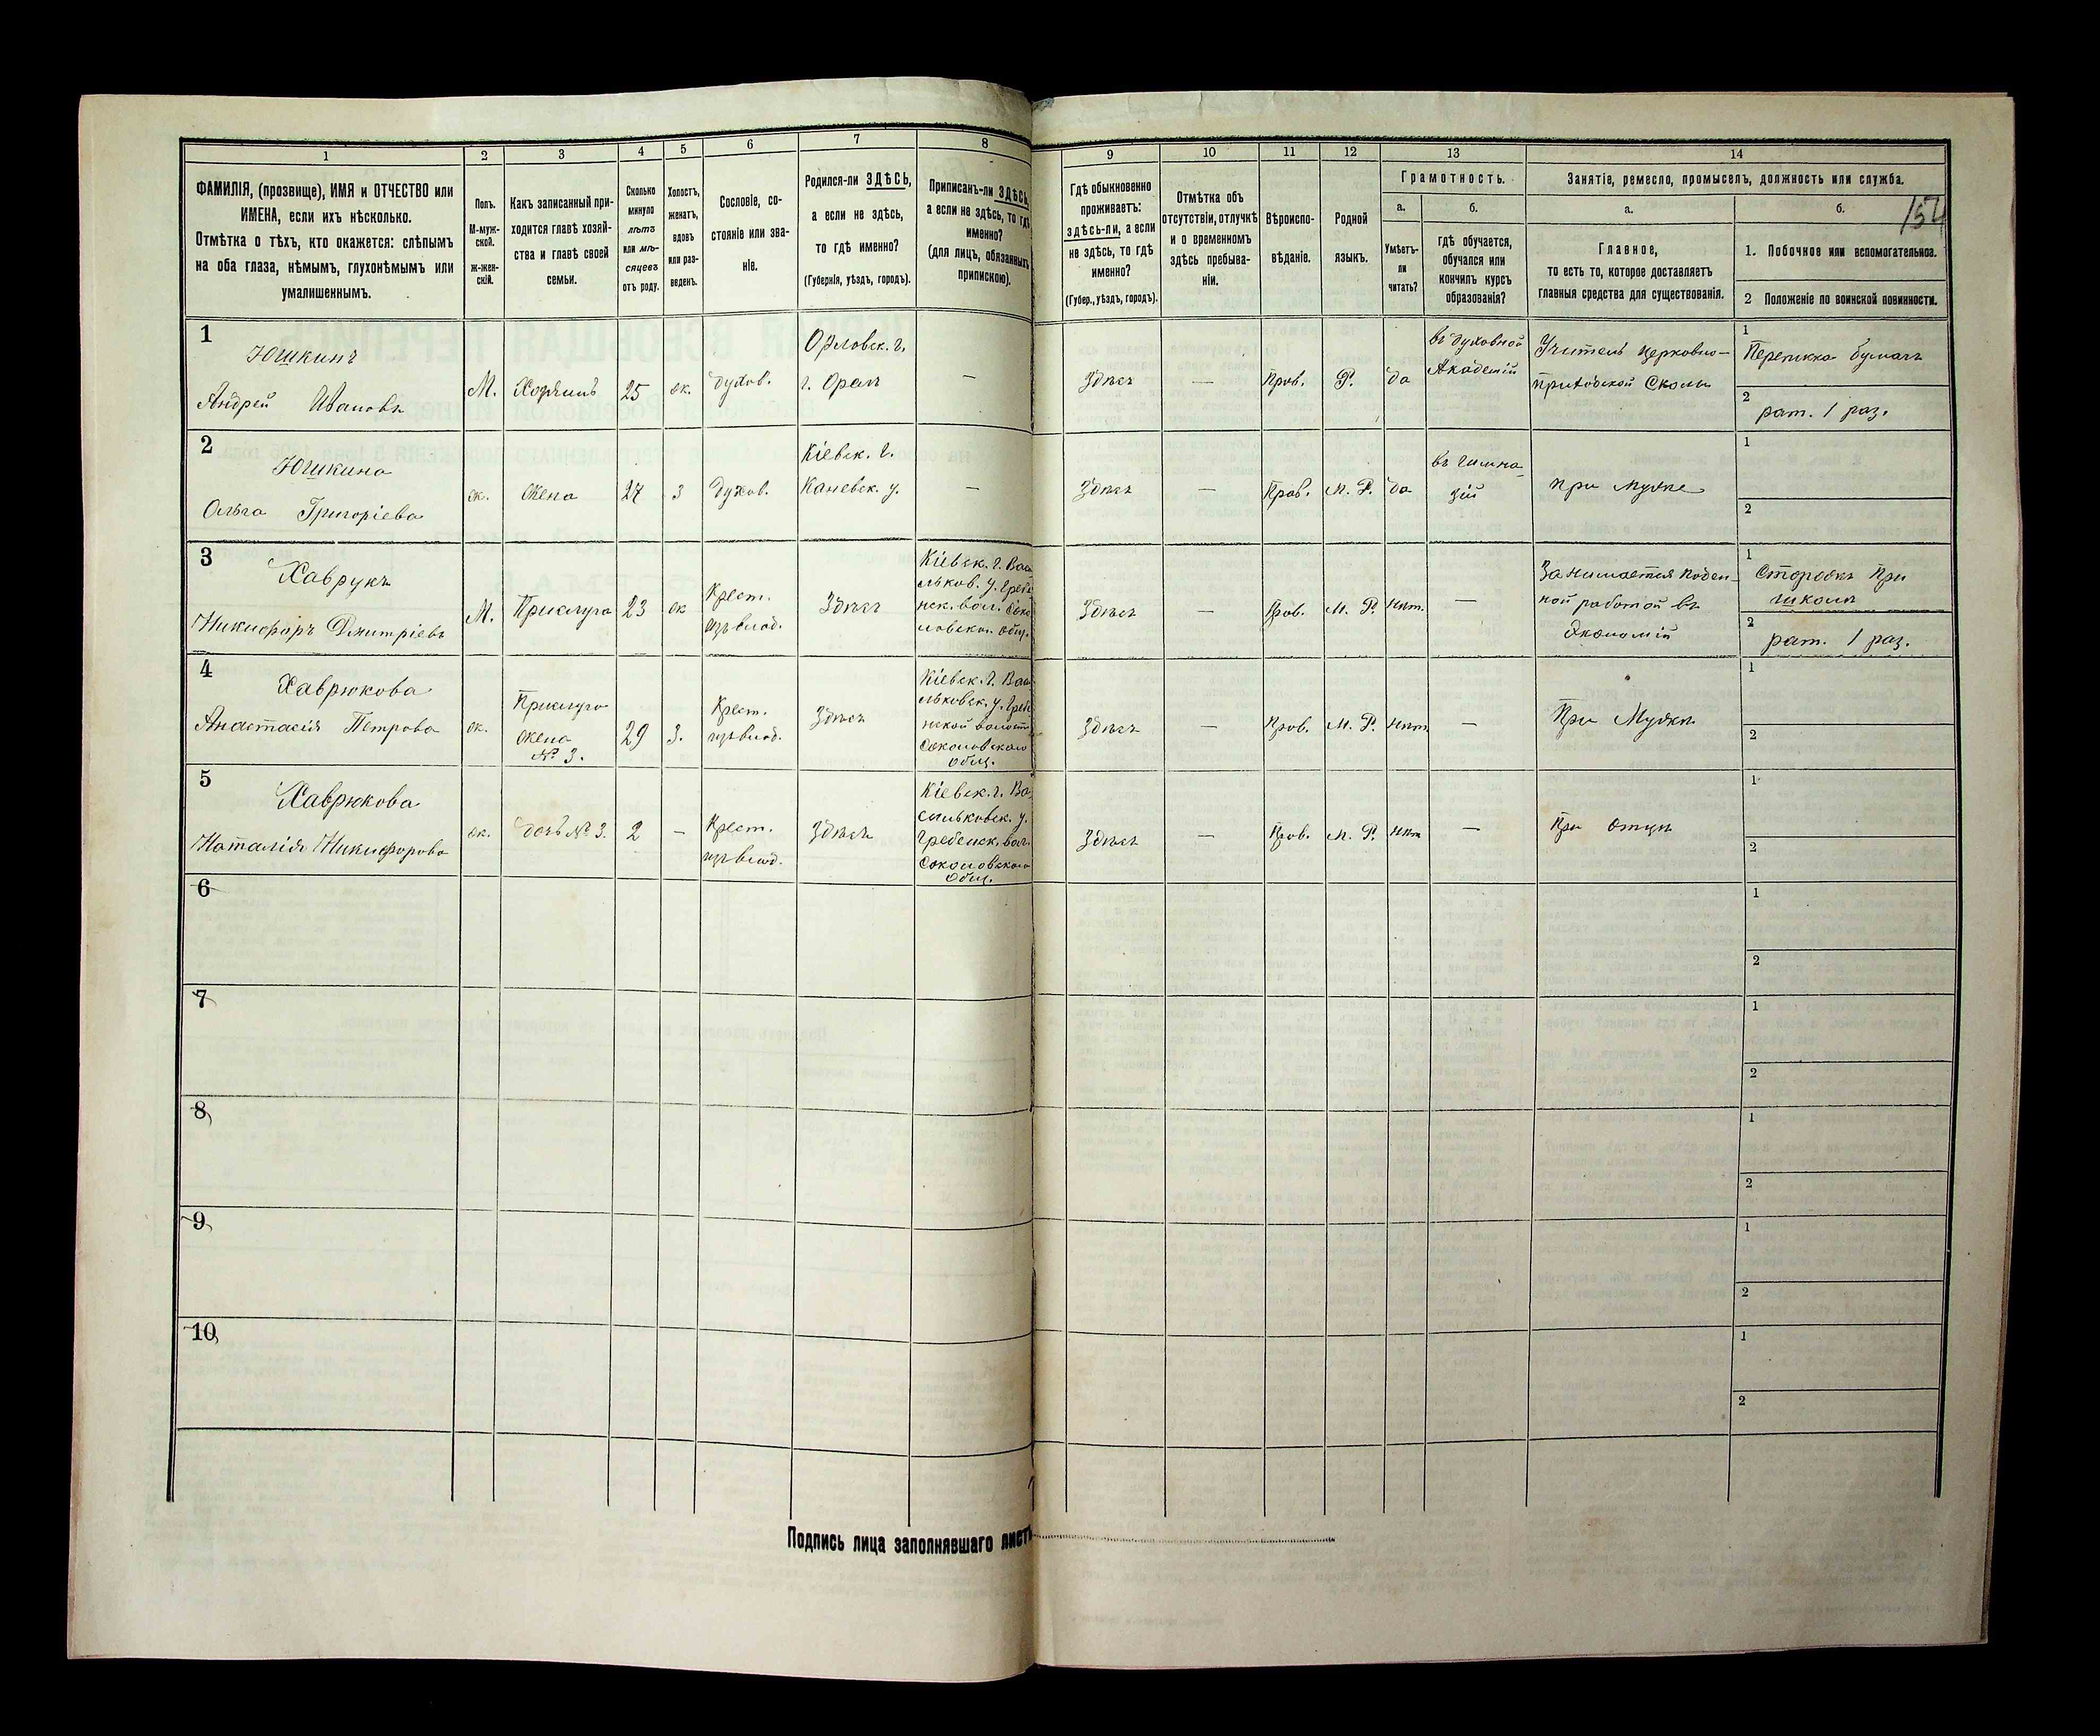 1
ФАМИЛІЯ, (прозвище), ИМЯ и ОТЧЕСТВО или
ИМЕНА, если ихъ нѣсколько.
Отмѣтка о тѣхъ, кто окажется: слѣпымъ
на оба глаза, нѣмымъ, глухонѣмымъ или
умалишеннымъ.
2
Полъ.
М-муж-
ской.
ж-жен-
скій.
3
Какъ записанный при-
ходится главѣ хозяй-
ства и главѣ своей
семьи.
4
Сколько
минуло
лѣтъ
или мѣ-
сяцевъ
отъ роду.
5
Холостъ,
женатъ,
вдовъ
или раз-
веденъ.
6
Сословіе, со-
стояніе или зва-
ніе.
7
Родился-ли ЗДѢСЬ,
а если не здѣсь,
то гдѣ именно?
(Губернія, уѣздъ, городъ).
8
Приписанъ-ли ЗДѢСЬ,
а если не здѣсь, то гдѣ
именно?
(для лицъ, обязанныхъ
припискою).
9
Гдѣ обыкновенно
проживаетъ:
здѣсь-ли, а если
не здѣсь, то гдѣ
именно?
(Губер., уѣздъ, городъ).
10
Отмѣтка объ
отсутствіи, отлучкѣ
и о временномъ
здѣсь пребыва-
ніи.
11
Вѣроиспо-
вѣданіе.
12
Родной
языкъ.
13
Грамотность.
а.
Умѣетъ-
ли
читать?
б.
гдѣ обучается,
обучался или
кончилъ курсъ
образованія?
14
Занятіе, ремесло, промыселъ, должность или служба.
а.
Главное,
то есть то, которое доставляетъ
главныя средства для существованія.
б.
154
1. Побочное или вспомогательное.
2 Положеніе по воинской повинности.
1
Юшкинъ
Андрей Ивановъ
М.
Хозяинъ
25
ж.
духов.
Орловск. г.
г. Орелъ
—
Здѣсь
—
Прав.
Р.
да
въ духовной
Академіи
Учитель церковно-
приходской Школы
1
Переписка бумагъ
2
рат. 1 раз.
2
Юшкина
Ольга Григоріева
ж.
Жена
27
з
духов.
Кіевск. г.
Каневск. у.
—
Здѣсь
—
Прав.
М. Р.
да
въ гимна
зіи
при мужѣ
1
2
3
Хаврукъ
Никифоръ Дмитріевъ
М.
Прислуга
23
ж
Крест.
изъ влад.
Здѣсь
Кіевск. г. Вас
ильков. у. Гребе
нск. вол. Соко
ловскаг. общ.
Здѣсь
—
Прав.
М. Р.
нѣт.
—
Занимается поден-
ной работой въ
экономіи
1
Сторожъ при
школѣ
2
рат. 1 раз.
4
Хаврюкова
Анастасія Петрова
ж.
Прислуга
жена
№ 3.
29
з.
Крест.
изъ влад.
Здѣсь
Кіевск. г. Вас
ильковск. у. Гребе
нской волост
Соколовскаго
общ.
Здѣсь
—
Прав.
М. Р.
нѣт
—
При Мужѣ
1
2
5
Хаврюкова
Наталія Никифорова
ж.
дочь № 3.
2
—
Крест.
изъ влад.
Здѣсь
Кіевск. г. Ва
сильковск. у.
Гребенск. вол.
Соколовскаго
Общ.
Здѣсь
—
Прав.
М. Р.
нѣт
—
При отцѣ
1
2
6
1
2
7
1
2
8
1
2
9
1
2
10
1
2
Подпись лица заполнявшаго листъ